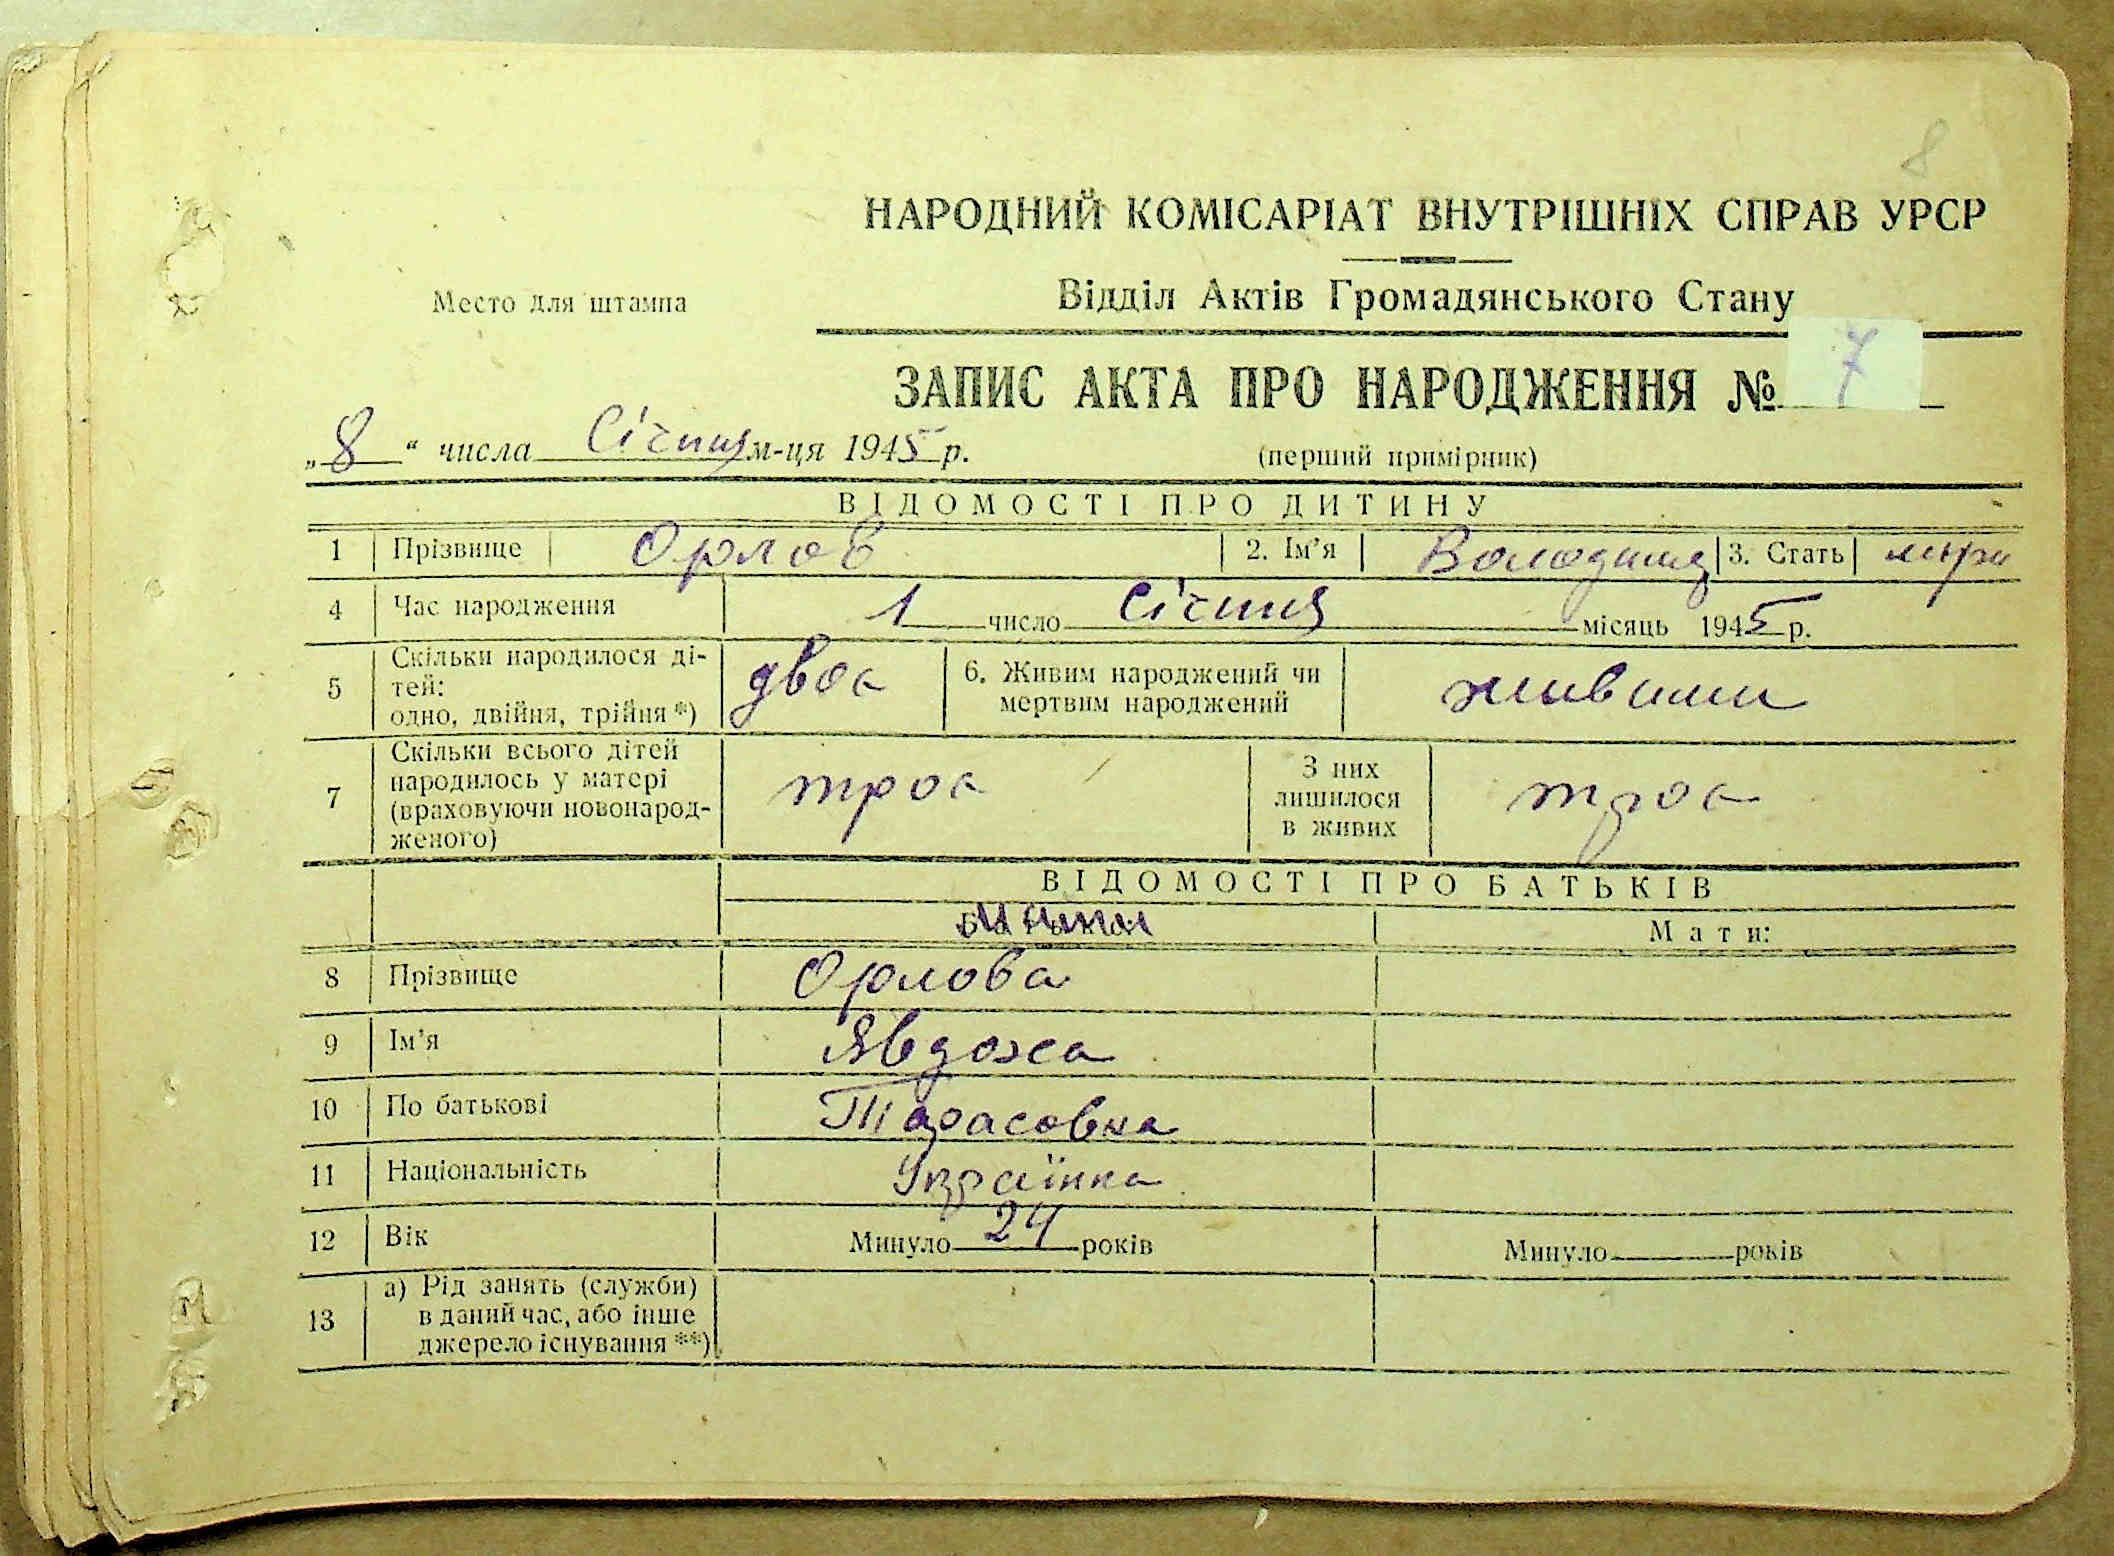 8
НАРОДНИЙ КОМІСАРІАТ ВНУТРІШНІХ СПРАВ УРСР
Место для штампа
Відділ Актів Громадянського Стану
ЗАПИС АКТА ПРО НАРОДЖЕННЯ № 7
„8“ числа Січня м-ця 1945 р.
(перший примірник)
ВІДОМОСТІ ПРО ДИТИНУ
1 Прізвище Орлов 2. Ім’я Володимир 3. Стать
4 Час народження 1 число Січня місяць 1945 р.
5 Скільки народилося ді-
тей:
одно, двійня, трійня *) двоє
6. Живим народжений чи
мертвим народжений живими
7 Скільки всього дітей
народилось у матері
(враховуючи новонарод-
женого) троє
З них
лишилося
в живих троє
ВІДОМОСТІ ПРО БАТЬКІВ
Мати Мати:
8 Прізвище Орлова
9 Ім’я Явдоха
10 По батькові Тарасовна
11 Національність Українка
12 Вік Минуло 24 років Минуло років
13 а) Рід занять (служби)
в даний час, або інше
джерело існування **)